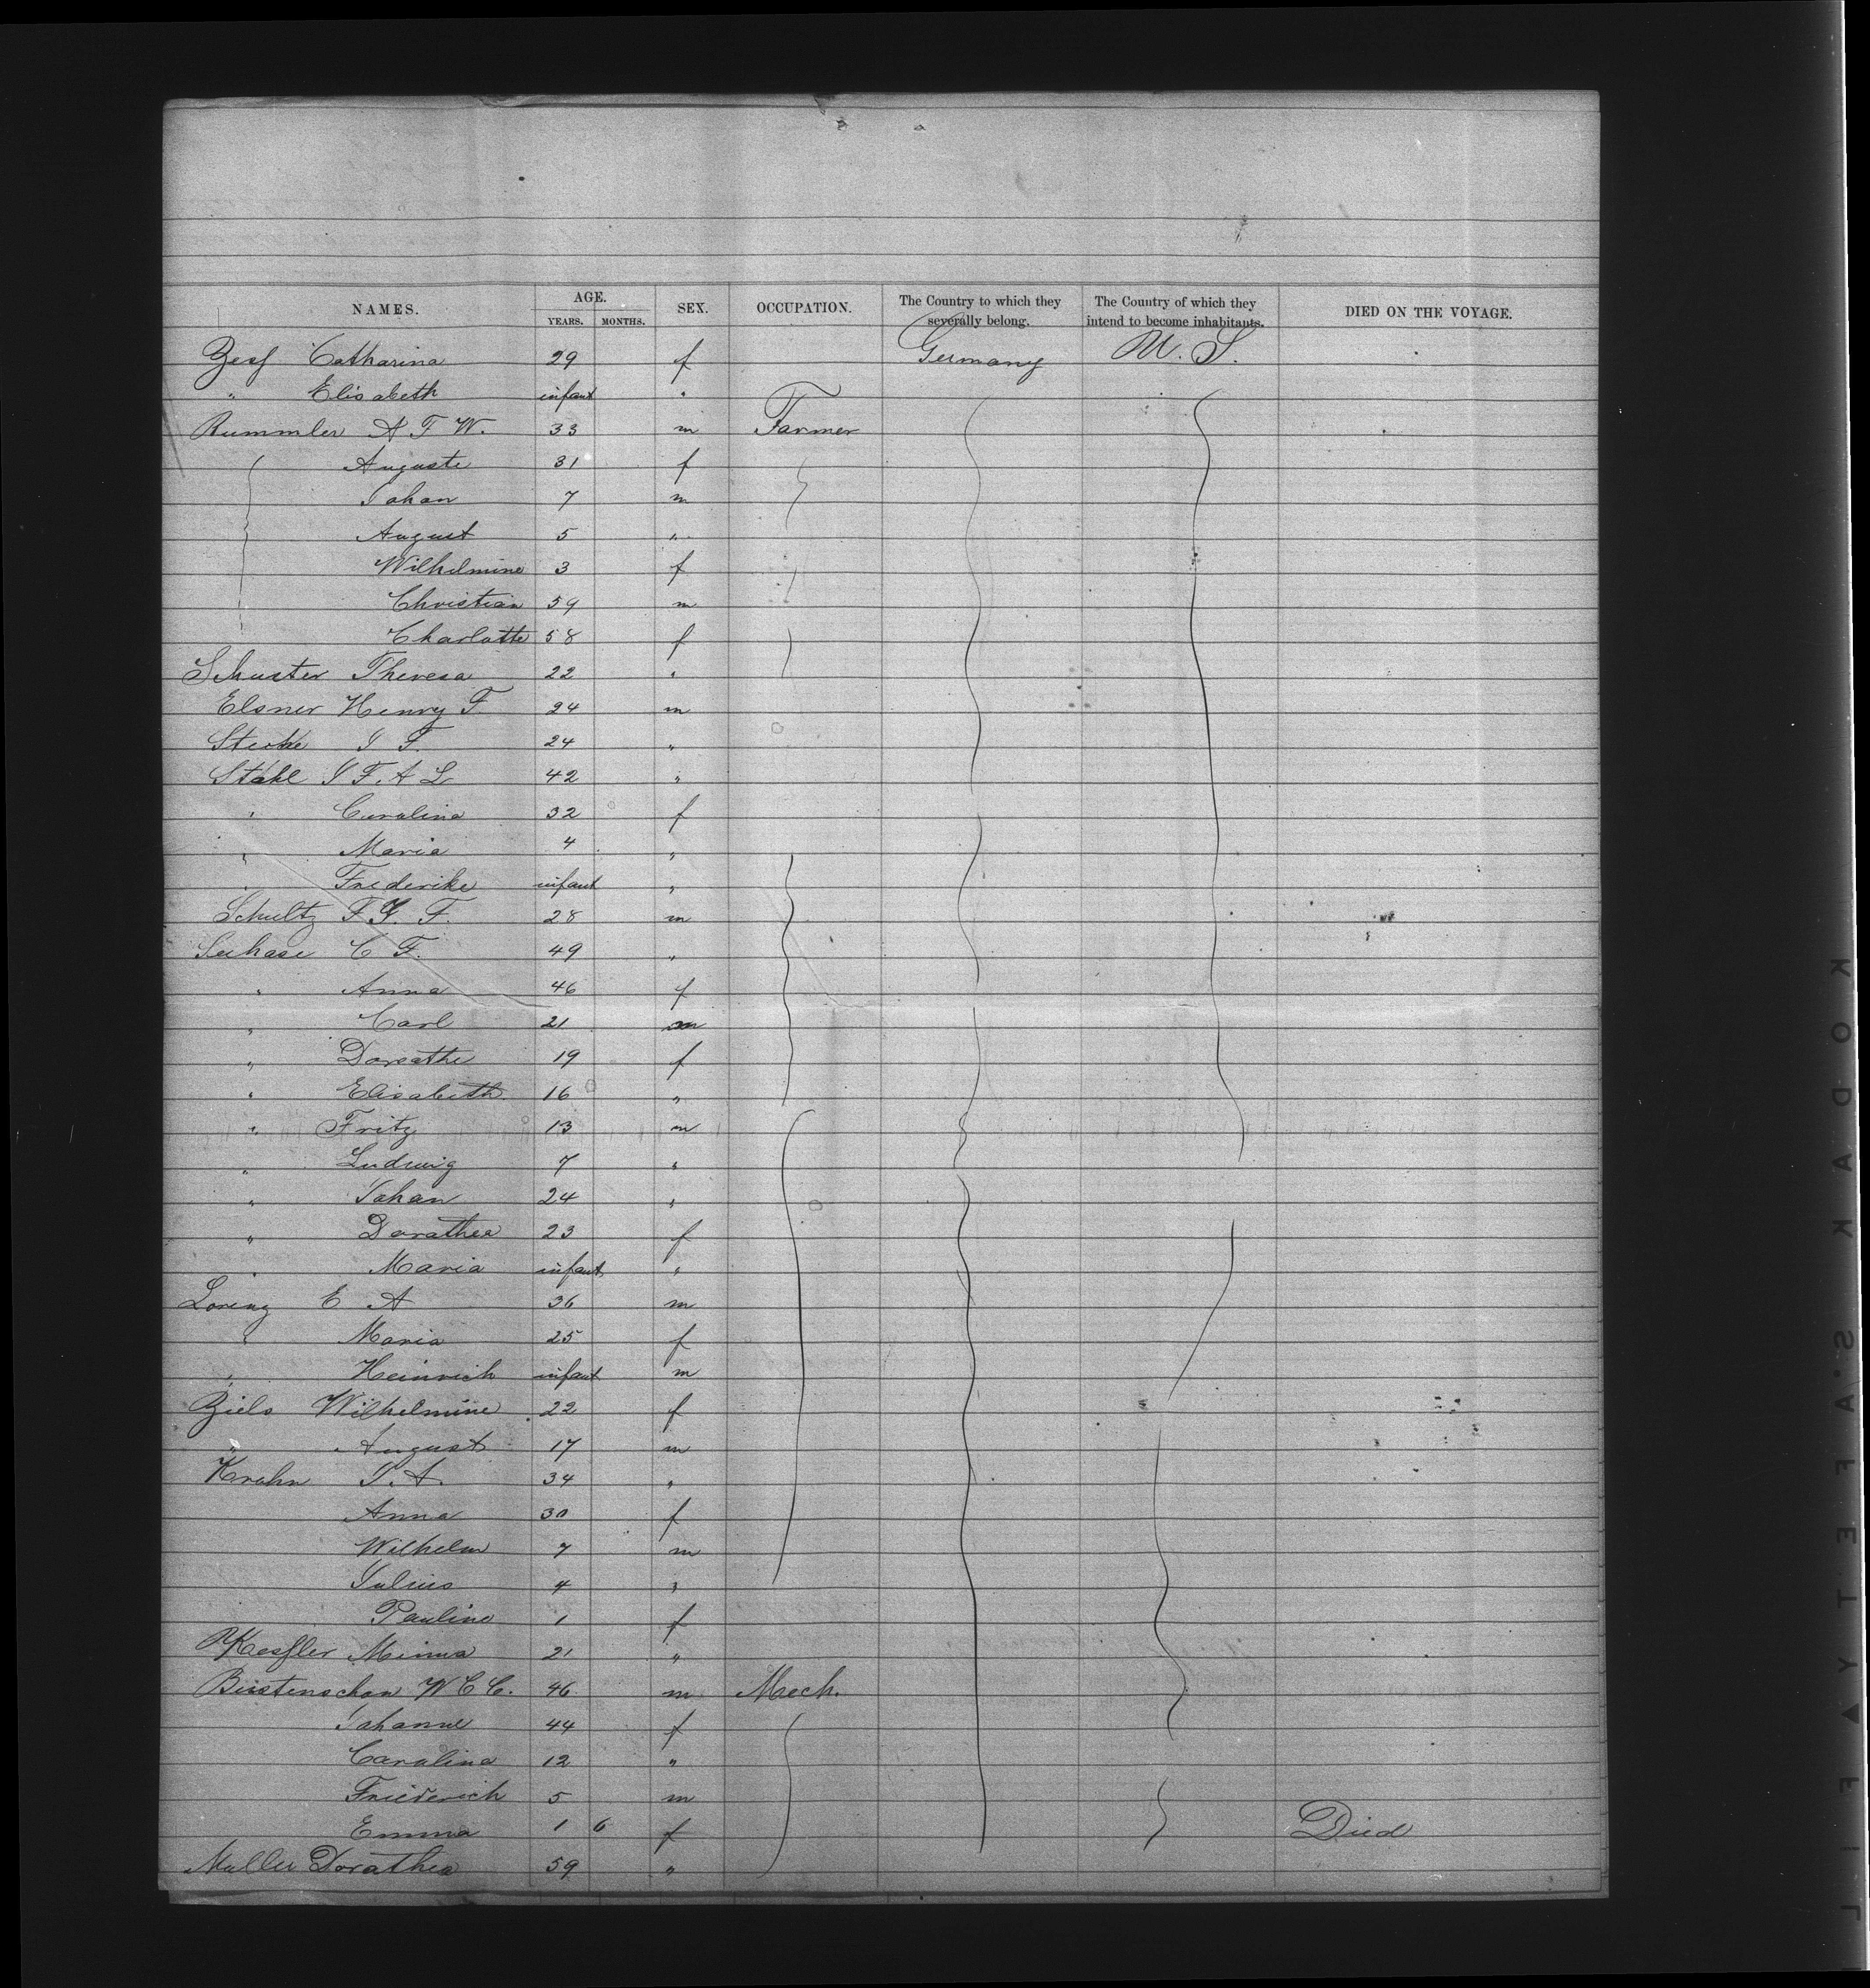 NAMES. AGE. SEX. OCCUPATION. The Country to which they severally belong. The Country of which they intend to become inhabitants. DIED ON THE VOYAGE.
YEARS. MONTHS.
Zesf Catharina 29 f Germany U. S.
" Elisabeth infant "
Rummler A F W. 33 m Farmer
Auguste 31 f
Johan 7 m
August 5 "
Wilhelmine 3 f
Christian 59 m
Charlotte 58 f
Schuster Theresa 22 "
Elsner Henry F. 24 m
J F. 24 "
Stahl J F. A L 42 "
" Carolina 32 f
" Maria 4 "
" Frederike infant "
Schultz F. F. 28 m
Seehase C F. 49 "
" Anna 46 f
" Carl 21 m
" Doroathe 19 f
" Elisabeth 16 "
" Fritz 13 m
" Ludwig 7 "
" Johan 24 "
" Dorathea 23 f
" Maria infant "
Lorenz E A 36 m
" Maria 25 f
" Heinrich infant m
Ziels Wilhelmine 22 f
" August 17 m
Krahn J. A. 34 "
Anna 30 f
Wilhelm 7 m
Julius 4 "
Pauline 1 f
Minna 21 "
W C C. 46 m Mech.
Johanne 44 f
Carolina 12 "
Friederich 5 m
Emma 1 6 f Died
Muller Dorathea 59 "
KODAK SAFETY FIL